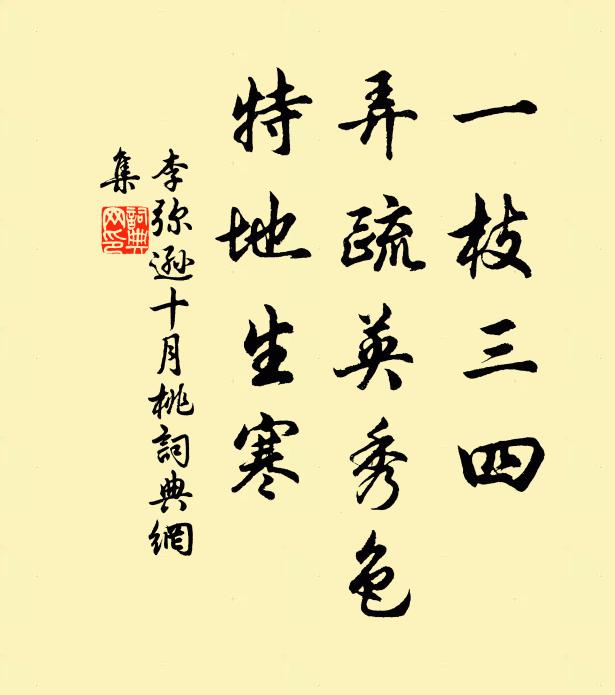 一枝三四
弄疏英秀色
特地生寒
李弥遜十月桃詞典網
集
詞典
网印